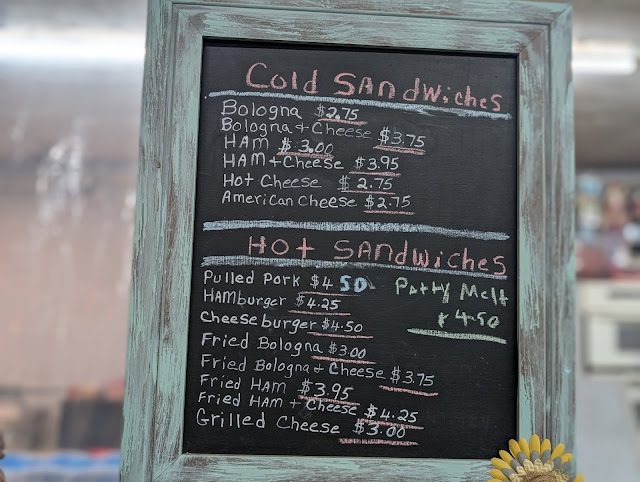 Cold SANdwiches
Bologna $2.75
Bologna + Cheese $3.75
HAM $3.00
HAM + Cheese $3.95
Hot Cheese $2.75
American Cheese $2.75
HOt SANdwiches
Pulled Pork $4 50
HAMburger $4.25
Cheeseburger $4.50
Fried Bologna $3.00
Fried Bologna + Cheese $3.75
Fried HAM $3.95
Fried HAM + Cheese $4.25
Grilled Cheese $3.00
Patty Melt
$4.50